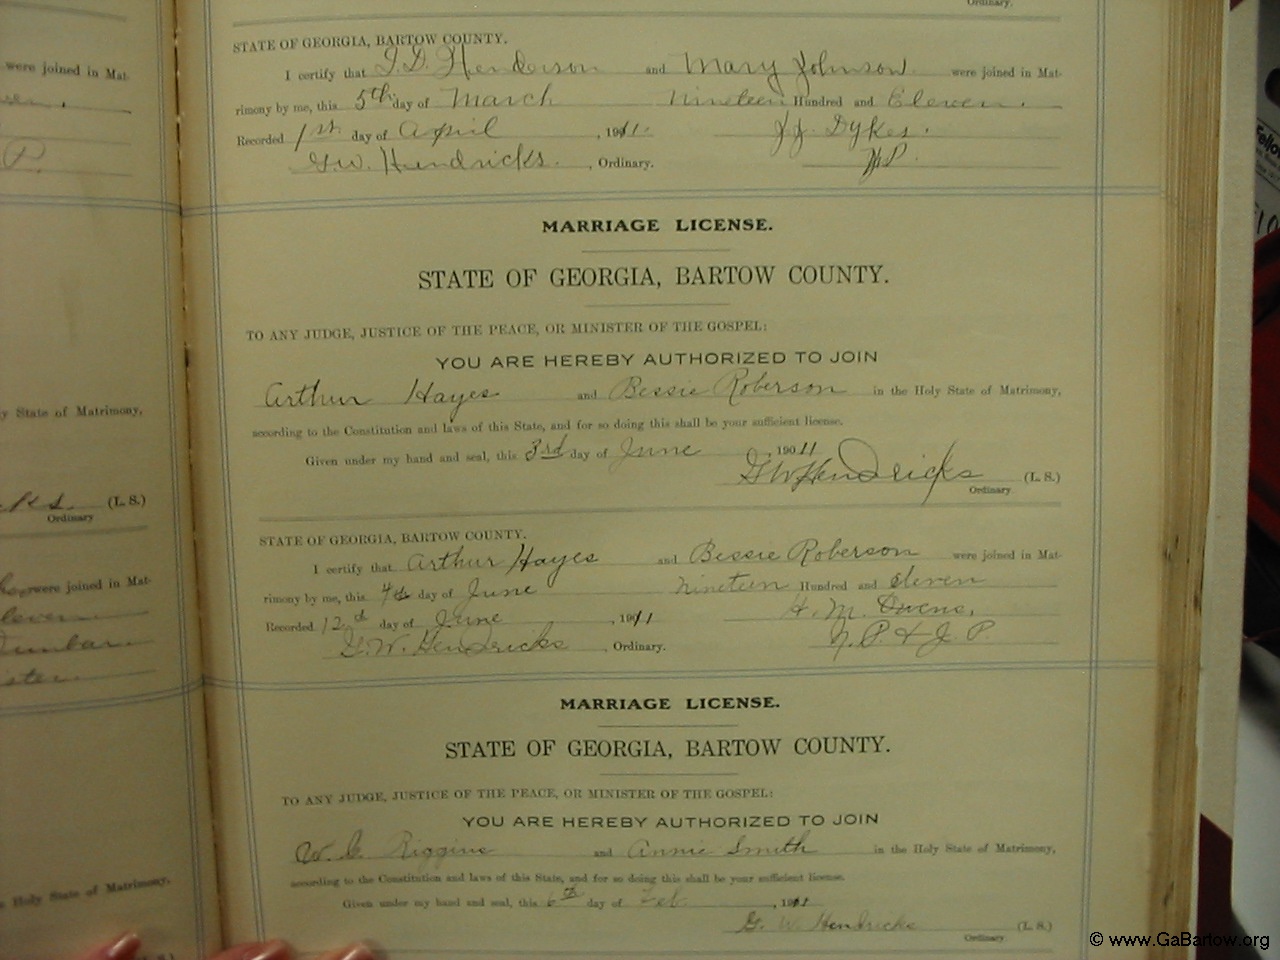 Ordinary.
STATE OF GEORGIA, BARTOW COUNTY.
I certify that J. D. Henderson and Mary Johnson were joined in Mat-
rimony by me, this 5th day of March Nineteen Hundred and Eleven.
Recorded 1st day of April, 1911. J. J. Dykes.
G. W. Hendricks., Ordinary. N P.
MARRIAGE LICENSE.
STATE OF GEORGIA, BARTOW COUNTY.
TO ANY JUDGE, JUSTICE OF THE PEACE, OR MINISTER OF THE GOSPEL:
YOU ARE HEREBY AUTHORIZED TO JOIN
Arthur Hayes and Bessie Roberson in the Holy State of Matrimony,
according to the Constitution and laws of this State, and for so doing this shall be your sufficient license.
Given under my hand and seal, this 3rd day of June, 190 11
G W Hendricks (L. S.)
Ordinary.
STATE OF GEORGIA, BARTOW COUNTY.
I certify that Arthur Hayes and Bessie Roberson were joined in Mat-
rimony by me, this 4th day of June Nineteen Hundred and eleven
Recorded 12th day of June, 1911 H. M. Owens,
G. W. Hendricks, Ordinary. N. P. & J. P.
MARRIAGE LICENSE.
STATE OF GEORGIA, BARTOW COUNTY.
TO ANY JUDGE, JUSTICE OF THE PEACE, OR MINISTER OF THE GOSPEL:
YOU ARE HEREBY AUTHORIZED TO JOIN
Riggins and Annie Smith in the Holy State of Matrimony,
according to the Constitution and laws of this State, and for so doing this shall be your sufficient license.
Given under my hand and seal, this 6th day of Feb., 1911
G. W. Hendricks (L. S.)
Ordinary.
were joined in Mat-
P.
y State of Matrimony,
(L. S.)
Ordinary
were joined in Mat-
Dunbar
Holy State of Matrimony,
© www.GaBartow.org